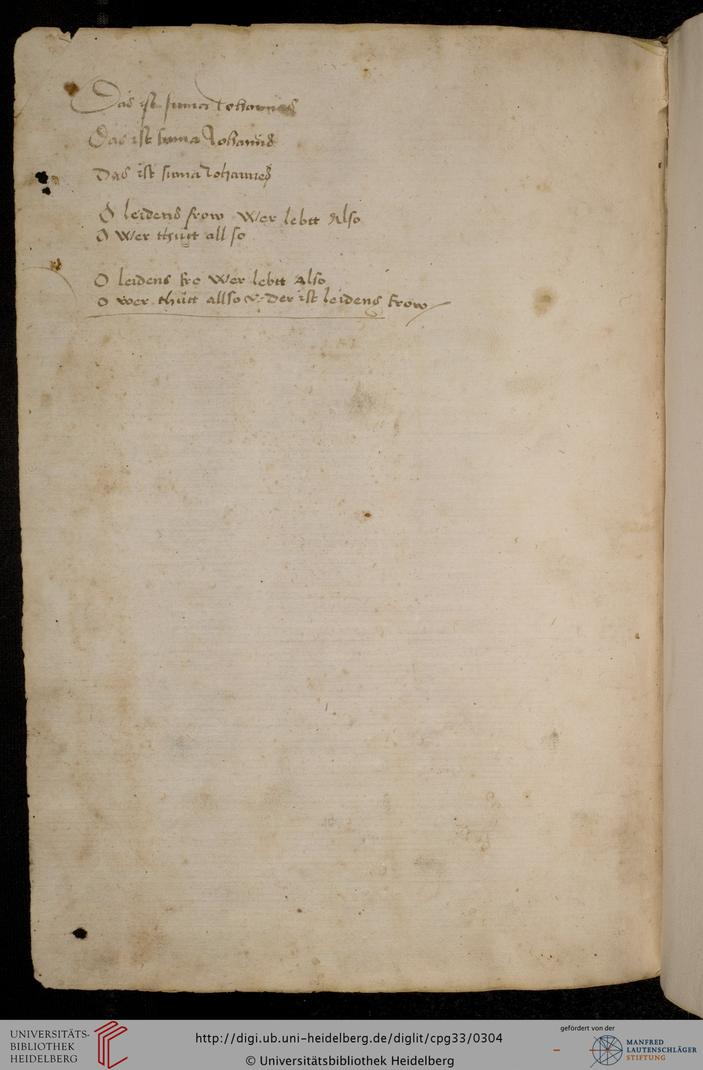 Das ist suma Johannes
Das ist suma Johannes
Das ist suma Johannes
O leidens frow wer lebtt Also
O wer thůtt all so
O leidens fro wer lebtt Also
O wer thůtt allso der ist leidens frow
UNIVERSITÄTS-
BIBLIOTHEK
HEIDELBERG
http://digi.ub.uni-heidelberg.de/diglit/cpg33/0304
© Universitätsbibliothek Heidelberg
gefördert von der
MANFRED
LAUTENSCHLÄGER
STIFTUNG